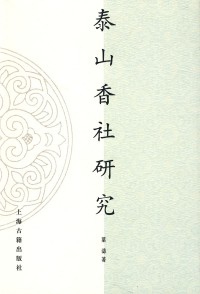 泰山香社研究
叶涛著
上海古籍出版社